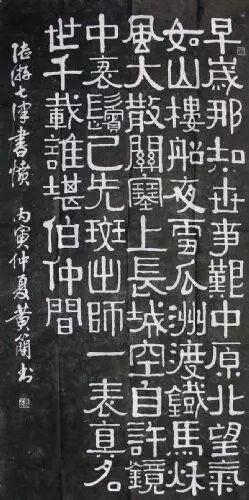 早歲那知世事艱中原北望氣
如山樓船夜雪瓜洲渡鐵馬秋
風大散關塞上長城空自許鏡
中衰鬢已先斑出師一表真名
世千載誰堪伯仲間
陸游七律書憤 丙寅仲夏黃簡書